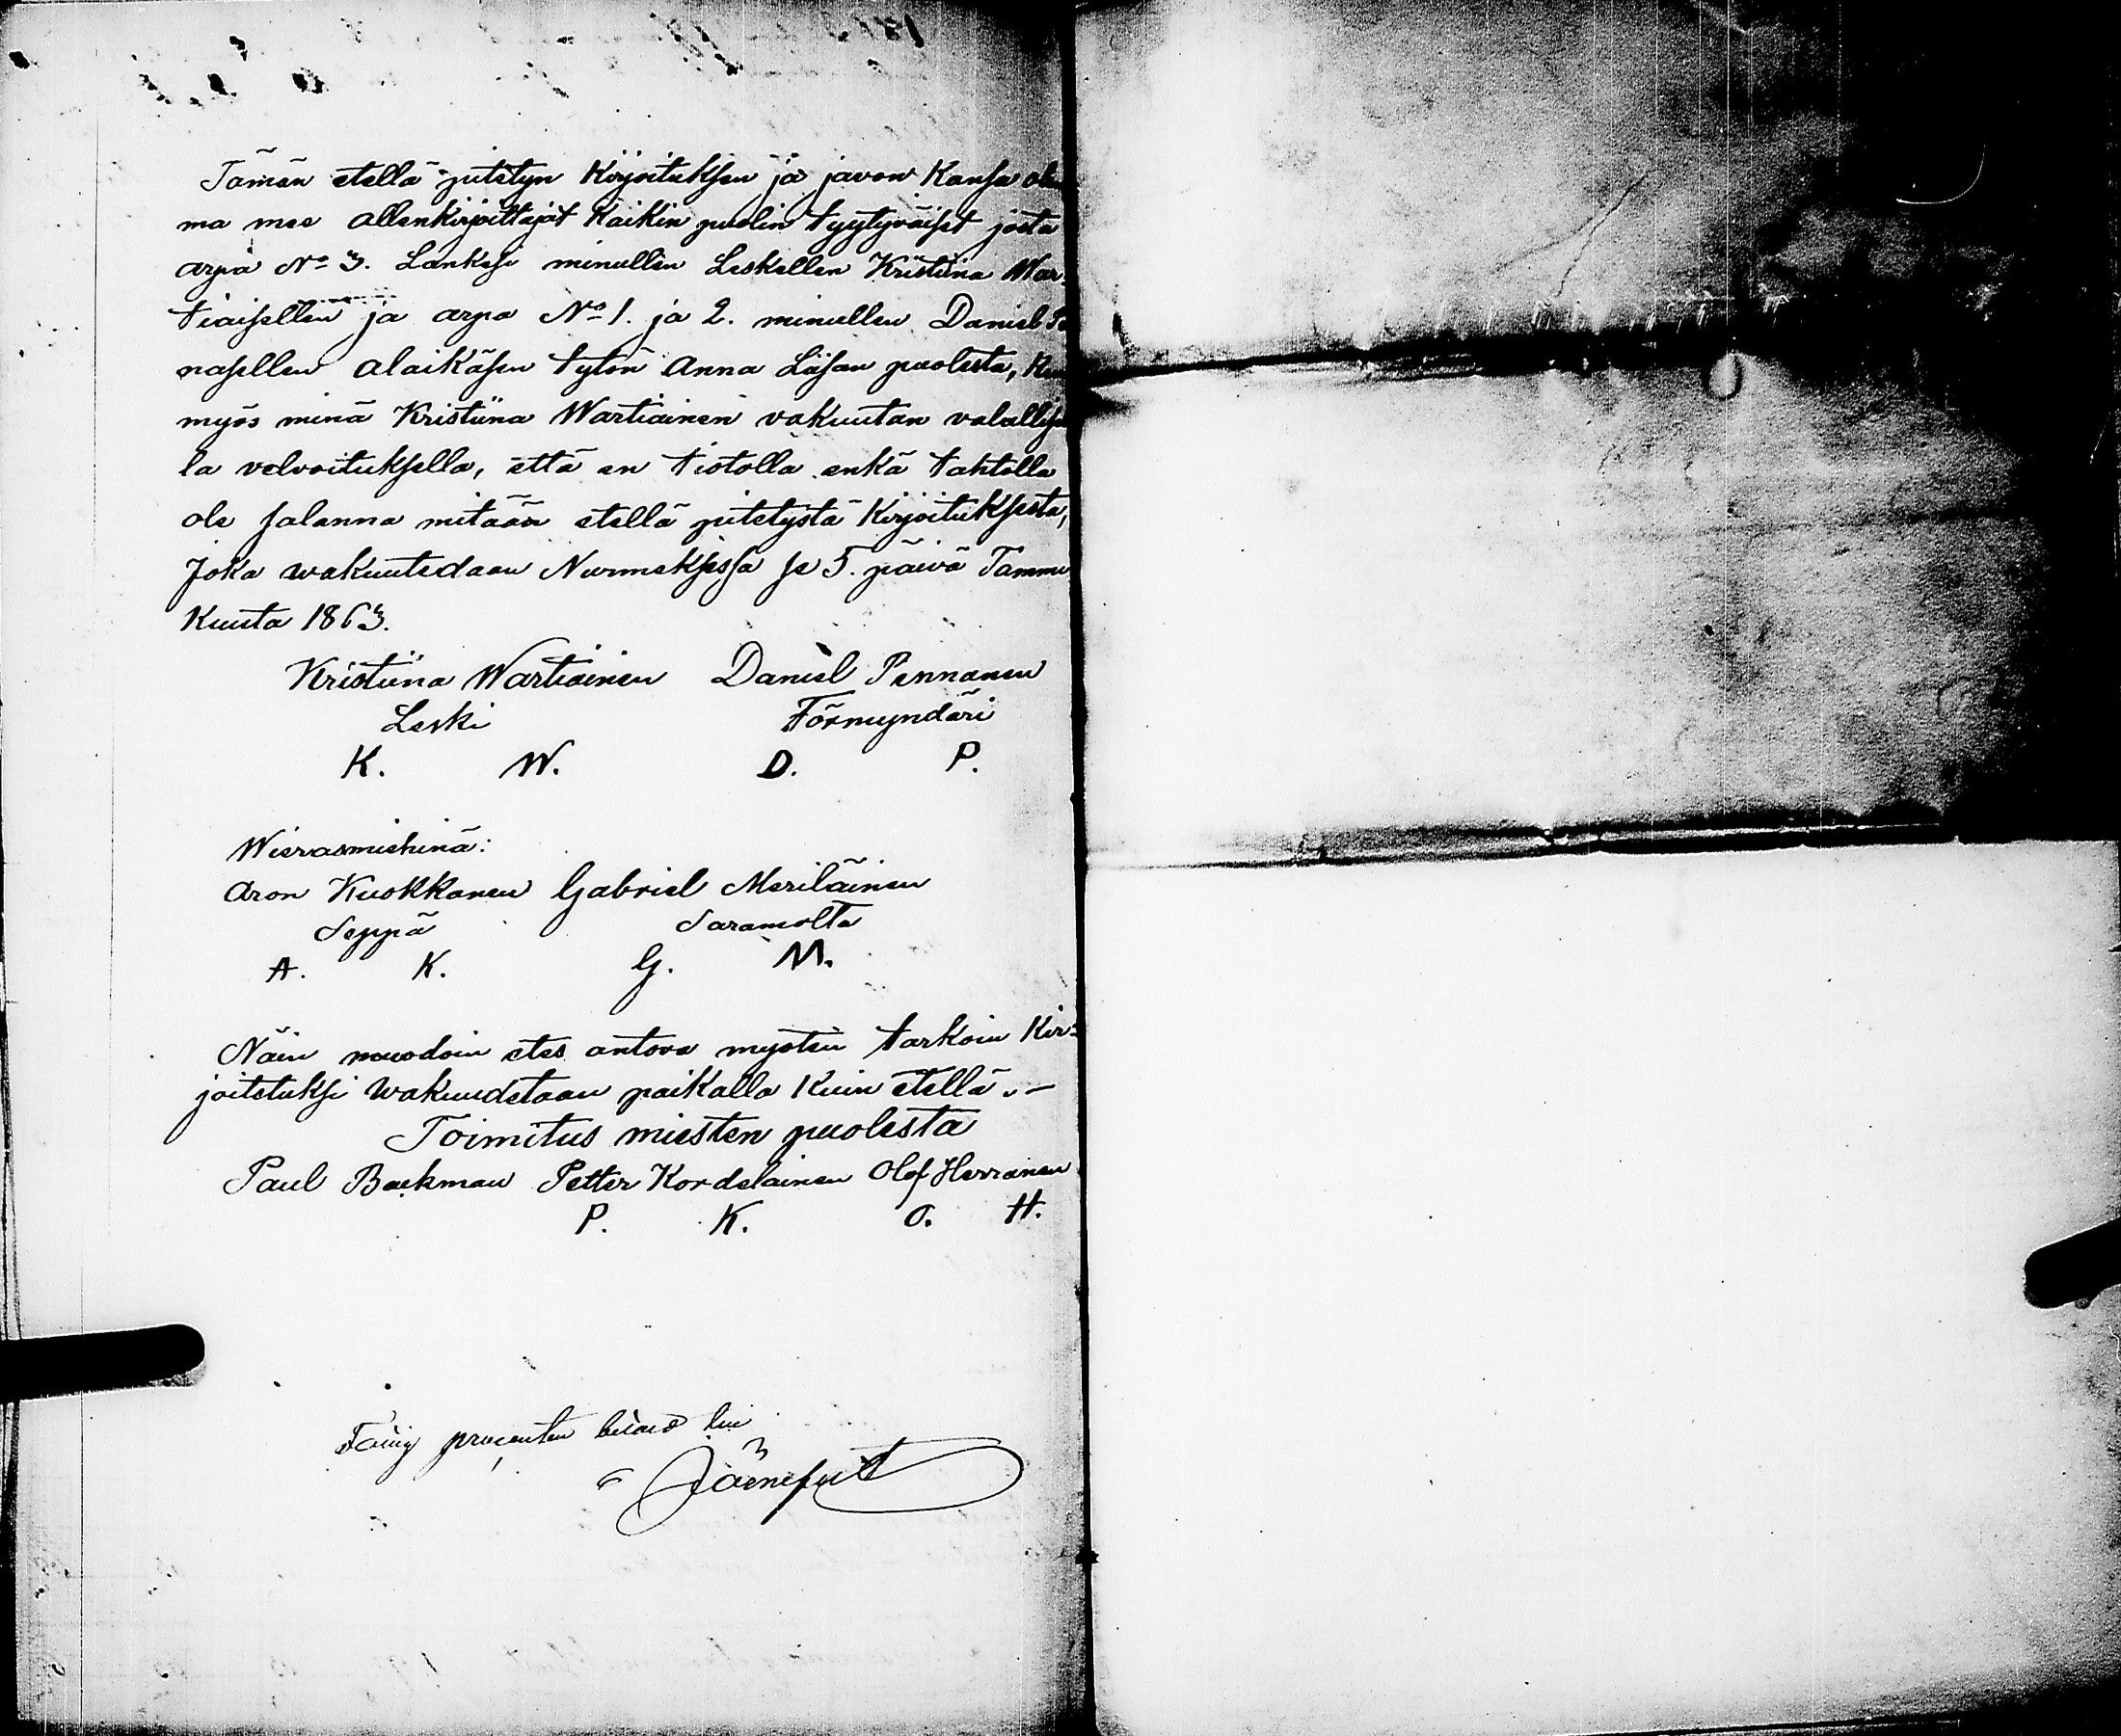 Tämän etellä pitetyn Kirjoituksen ja javon Kansa ole
ma mee allenkirjoittajat Kaikin puolin tyytyväiset josta
arpa No 3. Lankesi minullen Leskellen Kristiina War-
tiaisellen ja arpa No 1. ja 2. minullen Daniel Pe
nasellen alaikäsen tytön Anna Liisan puolesta,
myös minä Kristiina Wartiainen vakuutan valallise
la velvoituksella, että en tiotolla enkä tahtolla
ole salanna mitään etellä pitetystä Kirjoituksesta,
Joka wakuutedaan Nurmeksessa se 5. päivä Tammi
Kuuta 1863.
Kristiina Wartiainen Daniel Pennanen
Leski Förmyndäri
K. W. D. P.
Wierasmiehinä:
Aron Kuokkanen Gabriel Meriläinen
Seppä Saramolta
A. K. G. M.
Näin muodoin etes antova myöten tarkoin Kir-
joitetuksi wakuudetaan paikalla Kuin etellä.-
Toimitus miesten puolesta
Paul Backman Petter Kordelainen Olof Herranen
P. K. O. H.
Fattig procenten
Järnefelt